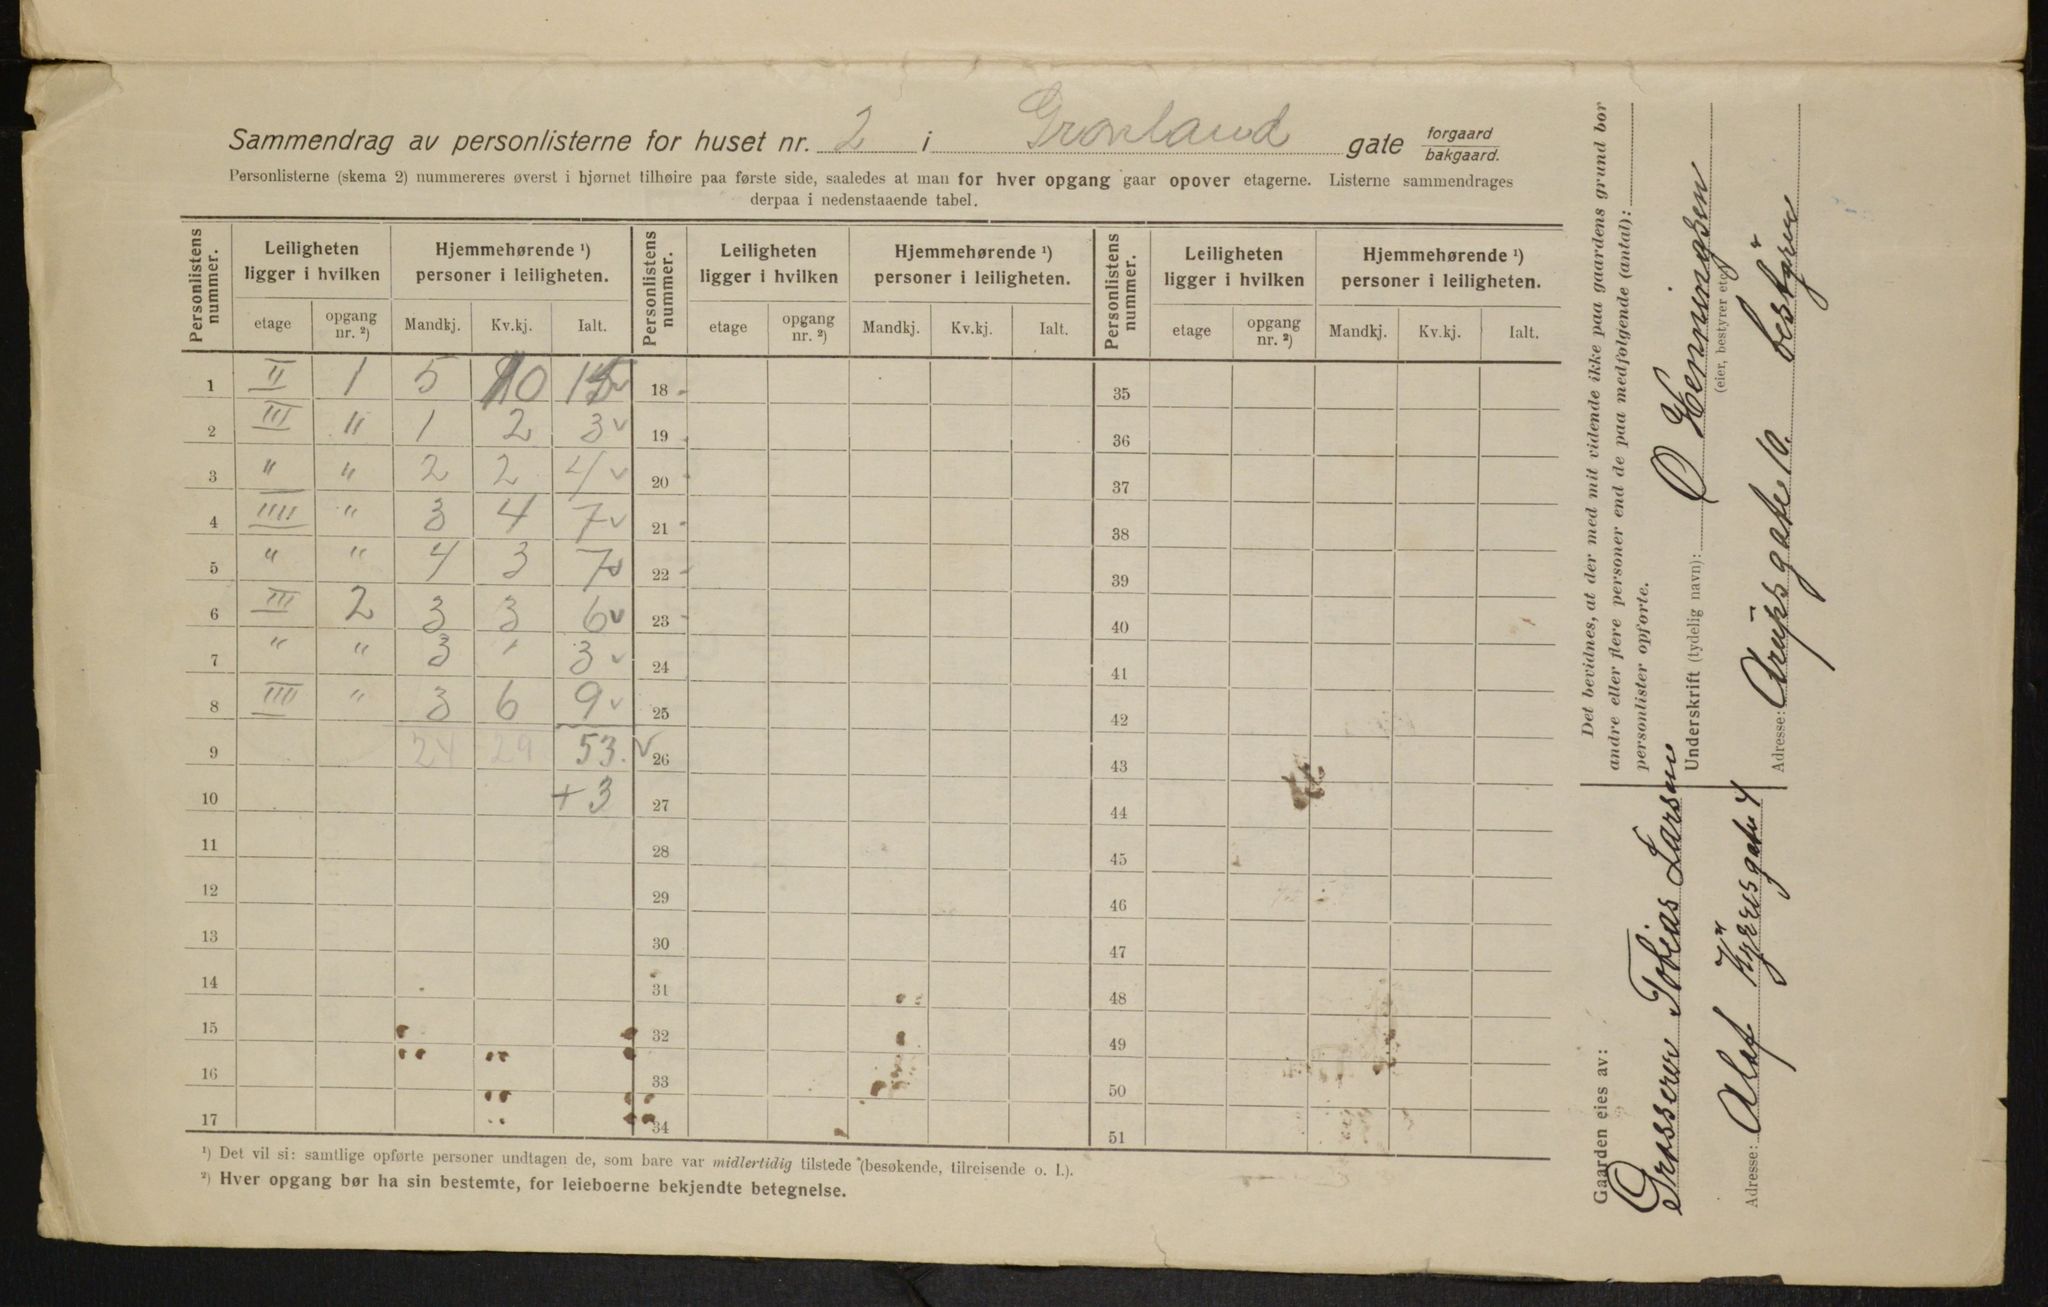 Sammendrag av personlisterne for huset nr. 2 i Grønland gate forgaard bakgaard.
Personlisterne (skema 2) nummereres øverst i hjørnet tilhøire paa første side, saaledes at man for hver opgang gaar opover etagerne. Listerne sammendrages
derpaa i nedenstaaende tabel.
Personlistens nummer. Leiligheten ligger i hvilken Hjemmehørende ¹) personer i leiligheten. Personlistens nummer. Leiligheten ligger i hvilken Hjemmehørende ¹) personer i leiligheten. Personlistens nummer. Leiligheten ligger i hvilken Hjemmehørende ¹) personer i leiligheten.
etage opgang nr. ²) Mandkj. Kv.kj. Ialt. etage opgang nr. ²) Mandkj. Kv.kj. Ialt. etage opgang nr. ²) Mandkj. Kv.kj. Ialt.
1 II 1 5 10 15 18 35
2 III " 1 2 3 19 36
3 " " 2 2 4 20 37
4 IIII " 3 4 7 21 38
5 " " 4 3 7 22 39
6 III 2 3 3 6 23 40
7 " " 3 " 3 24 41
8 IIII " 3 6 9 25 42
9 24 29 53. 26 43
10 +3 27 44
11 28 45
12 29 46
13 30 47
14 31 48
15 32 49
16 33 50
17 34 51
¹) Det vil si: samtlige opførte personer undtagen de, som bare var midlertidig tilstede (besøkende, tilreisende o. l.).
²) Hver opgang bør ha sin bestemte, for leieboerne bekjendte betegnelse.
Det bevidnes, at der med mit vidende ikke paa gaardens grund bor
andre eller flere personer end de paa medfølgende (antal):
personlister opførte.
Underskrift (tydelig navn): O Henningsen
(eier, bestyrer etc.)
Adresse: Arupsgate 10. bestyrer
Gaarden eies av:
Grosserer Tobias Larsen
Adresse: Olaf Kyrresgate 4